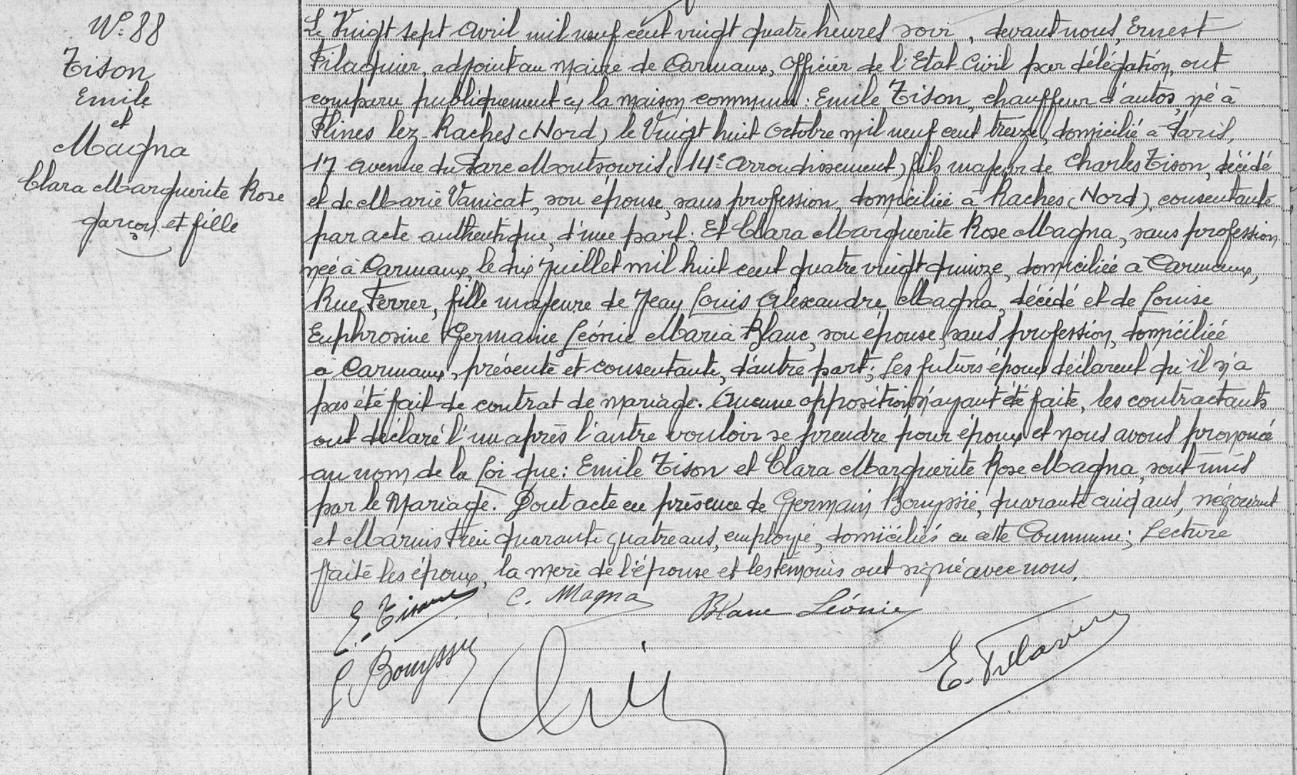 N° 88
Tison
Emile
et
Magna
Clara Marguerite Rose
garçon et fille
Le Vingt sept Avril mil neuf cent vingt quatre heures soir, devant nous, Ernest
Filaquier, adjoint au Maire de Carmaux, Officier de l'Etat-Civil par délégation, ont
comparu publiquement en la maison commune: Emile Tison, chauffeur d'autos, né à
Flines lez-Raches (Nord), le Vingt huit Octobre mil neuf cent treize, domicilié à Paris,
17 avenue du Parc Montsouris (14e Arrondissement), fils majeur de Charles Tison, décédé
et de Marie Vanicat, son épouse, sans profession, domiciliée à Raches (Nord), consentante
par acte authentique, d'une part. Et Clara Marguerite Rose Magna, sans profession
née à Carmaux, le dix Juillet mil huit cent quatre vingt quinze, domiciliée à Carmaux,
Rue Ferrer, fille majeure de Jean Louis Alexandre Magna, décédé et de Louise
Euphrosine Germaine Léonie Maria Blanc, son épouse, sans profession, domiciliée
à Carmaux, présente et consentante, d'autre part; Les futurs époux déclarent qu'il n'a
pas été fait de contrat de mariage. Aucune opposition n'ayant été faite, les contractants
ont déclaré l'un après l'autre vouloir se prendre pour époux et nous avons prononcé
au nom de la Loi que: Emile Tison et Clara Marguerite Rose Magna, sont unis
par le Mariage. Dont acte en présence de Germain Bouyssié, quarante cinq ans, négociant
et Marius quarante quatre ans, employé, domiciliés en cette Commune; Lecture
faite les époux, la mère de l'épouse et les témoins ont signé avec nous.
E. Tison C. Magna Blanc Léonie
G Bouyssié
E. Filaquier